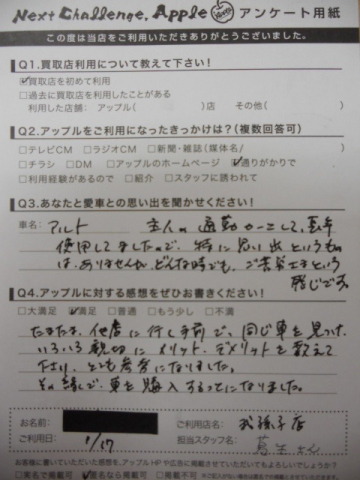 Next Challenge, Apple アンケート用紙
この度は当店をご利用いただきありがとうございました。
Q1.買取店利用について教えて下さい!
☑買取店を初めて利用
□過去に買取店を利用したことがある
利用した店舗: アップル( )店 その他( )
Q2.アップルをご利用になったきっかけは?(複数回答可)
□テレビCM □ラジオCM □新聞・雑誌(媒体名/ )
□チラシ □DM □アップルのホームページ ☑通りがかりで
□利用経験があるので □紹介 □スタッフに誘われて
Q3.あなたと愛車との思い出を聞かせください!
車名: アルト 主人の通勤カーとして、長年
使用してましたので、特に思い出というもの
は、ありませんが、どんな時でも、ご苦労さまという
感じです。
Q4.アップルに対する感想をぜひお書きください!
□大満足 ☑満足 □普通 □もう少し □不満
たまたま、他店に行く手前で、同じ車を見つけ、
いろいろ親切にメリット、デメリットを教えて
下さい、とても参考になりました。
その縁で車を購入することになりました。
お名前:
ご利用店名: 我孫子店
ご利用日: 1/17
担当スタッフ名: さん
お客様に書いていただいた感想を、アップルHPや広告に掲載させていただいてもよろしいでしょうか?
□実名で掲載可 ☑匿名なら掲載可 □掲載不可